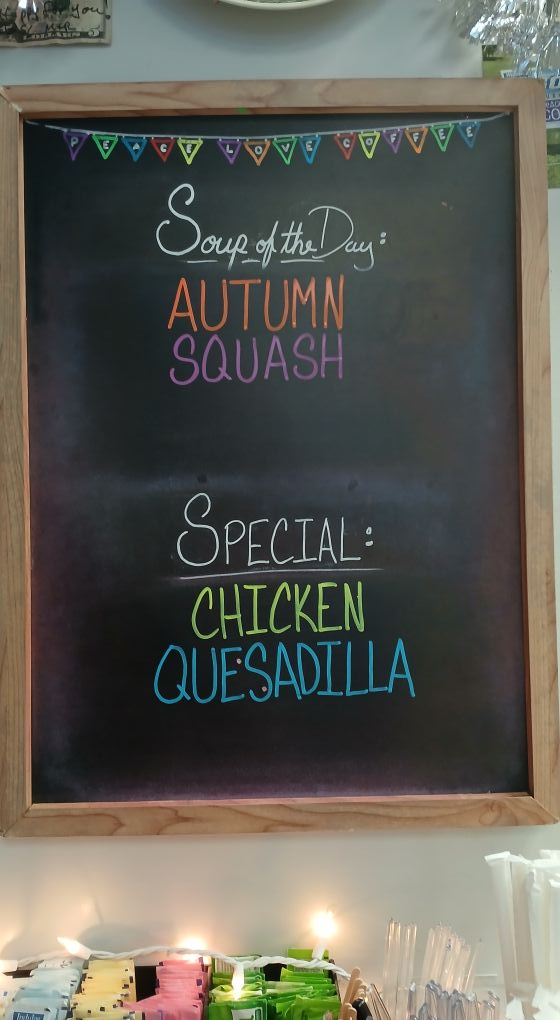 PEACE LOVE COFFEE
Soup of the Day:
AUTUMN
SQUASH
SPECIAL:
CHICKEN
QUESADILLA